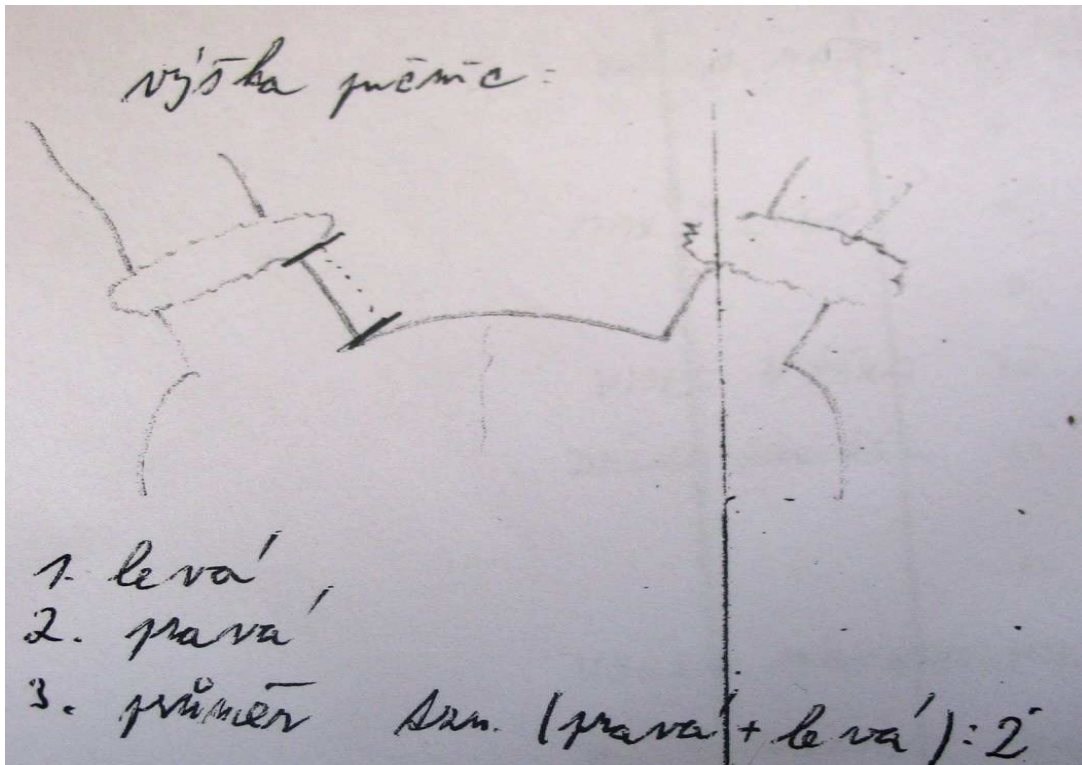 výška pučnic:
1. levá
2. pravá
3. průměr tzn. (pravá + levá):2